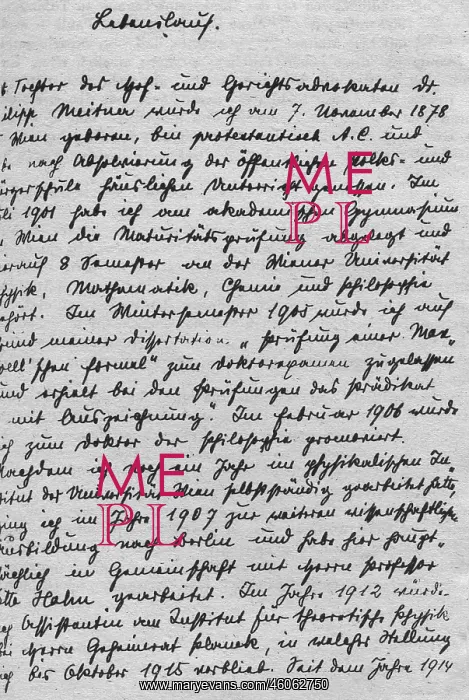 Lebenslauf.
Tochter des Hof- und Gerichtsadvokaten Dr.
ilipp Meitner wurde ich am 7. November 1878
Wien geboren, bin protestantisch A.C. und
nach Absolvierung der öffentlichen Volks- und
ürgerschule häuslichen Unterricht genossen. Im
uli 1901 habe ich am akademischen Gymnasium
Wien die Maturitätsprüfung abgelegt und
ierauf 8 Semester an der Wiener Universität
hysik, Mathematik, Chemie und Philosophie
ehört. Im Wintersemester 1905 wurde ich auf
rund meiner Dissertation „Prüfung einer Max„
well'schen Formel" zum Doktorexamen zugelassen
und erhielt bei den Prüfungen das Prädikat
mit Auszeichnung". Im Februar 1906 wurde
ich zum Doktor der Philosophie promoviert.
Nachdem ich noch ein Jahr im physikalischen In„
titut der Universität Wien selbstständig gearbeitet hatte,
ging ich im Jahre 1907 zur weiteren wissenschaftlichen
Ausbildung nach Berlin und habe hier haupt„
sächlich in Gemeinschaft mit Herrn Professor
tto Hahn gearbeitet. Im Jahre 1912 wurde
ich Assistentin am Institut für theoretische Physik
bei Herrn Geheimrat Planck, in welcher Stellung
ich bis Oktober 1915 verblieb. Seit dem Jahre 1914
ME
PL
ME
PL
www.maryevans.com/46062750